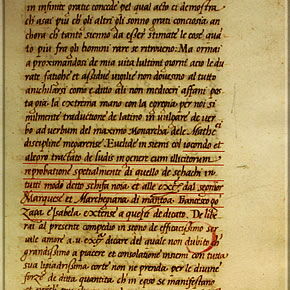 in infinite gratie concede pel qual acto ci demostra
ch asai piu ch gli altri gli sonno grati conciosia an
chora ch tanto sienno da eser stimate le cose qua
to piu fra gli homini rare se ritrovino: Ma ormai
a proximandosi de mia vita lultimi giorni acto le du
rate fatiche et asidue vigilie non dovesino al tutto
anichilarsi como e ditto ali non mediocri affani pos
ta pia la extrema mano con la copia per noi si
milmente traductione de latino in vulgare de ver
bo ad verbum del maximo Monarcha dele Mathe
discipline megarense. Euclide in siemi col iocondo et
alegro tractato de ludis in genere cum illicitorum
reprobatione spetialmenti di quello de schachi in
tutti modo detto schifa noia et alle exᵗⁱᵉ dal segnior
Marquese et Marchegiana di mantoa. Francesco go
Zaga Elsabela extense a questi dedicato. Deliber
rai al presente compedio in segno de efficacissimo ser
uale amore a u. exᵗⁱᵃ dicare del quale non dubito
grandissimo a piacere et consolatione inemi con tutta
sua ligiadrissima corte non ne prenda: per le divine
forze de ditta quantita ch in epso se manifestano